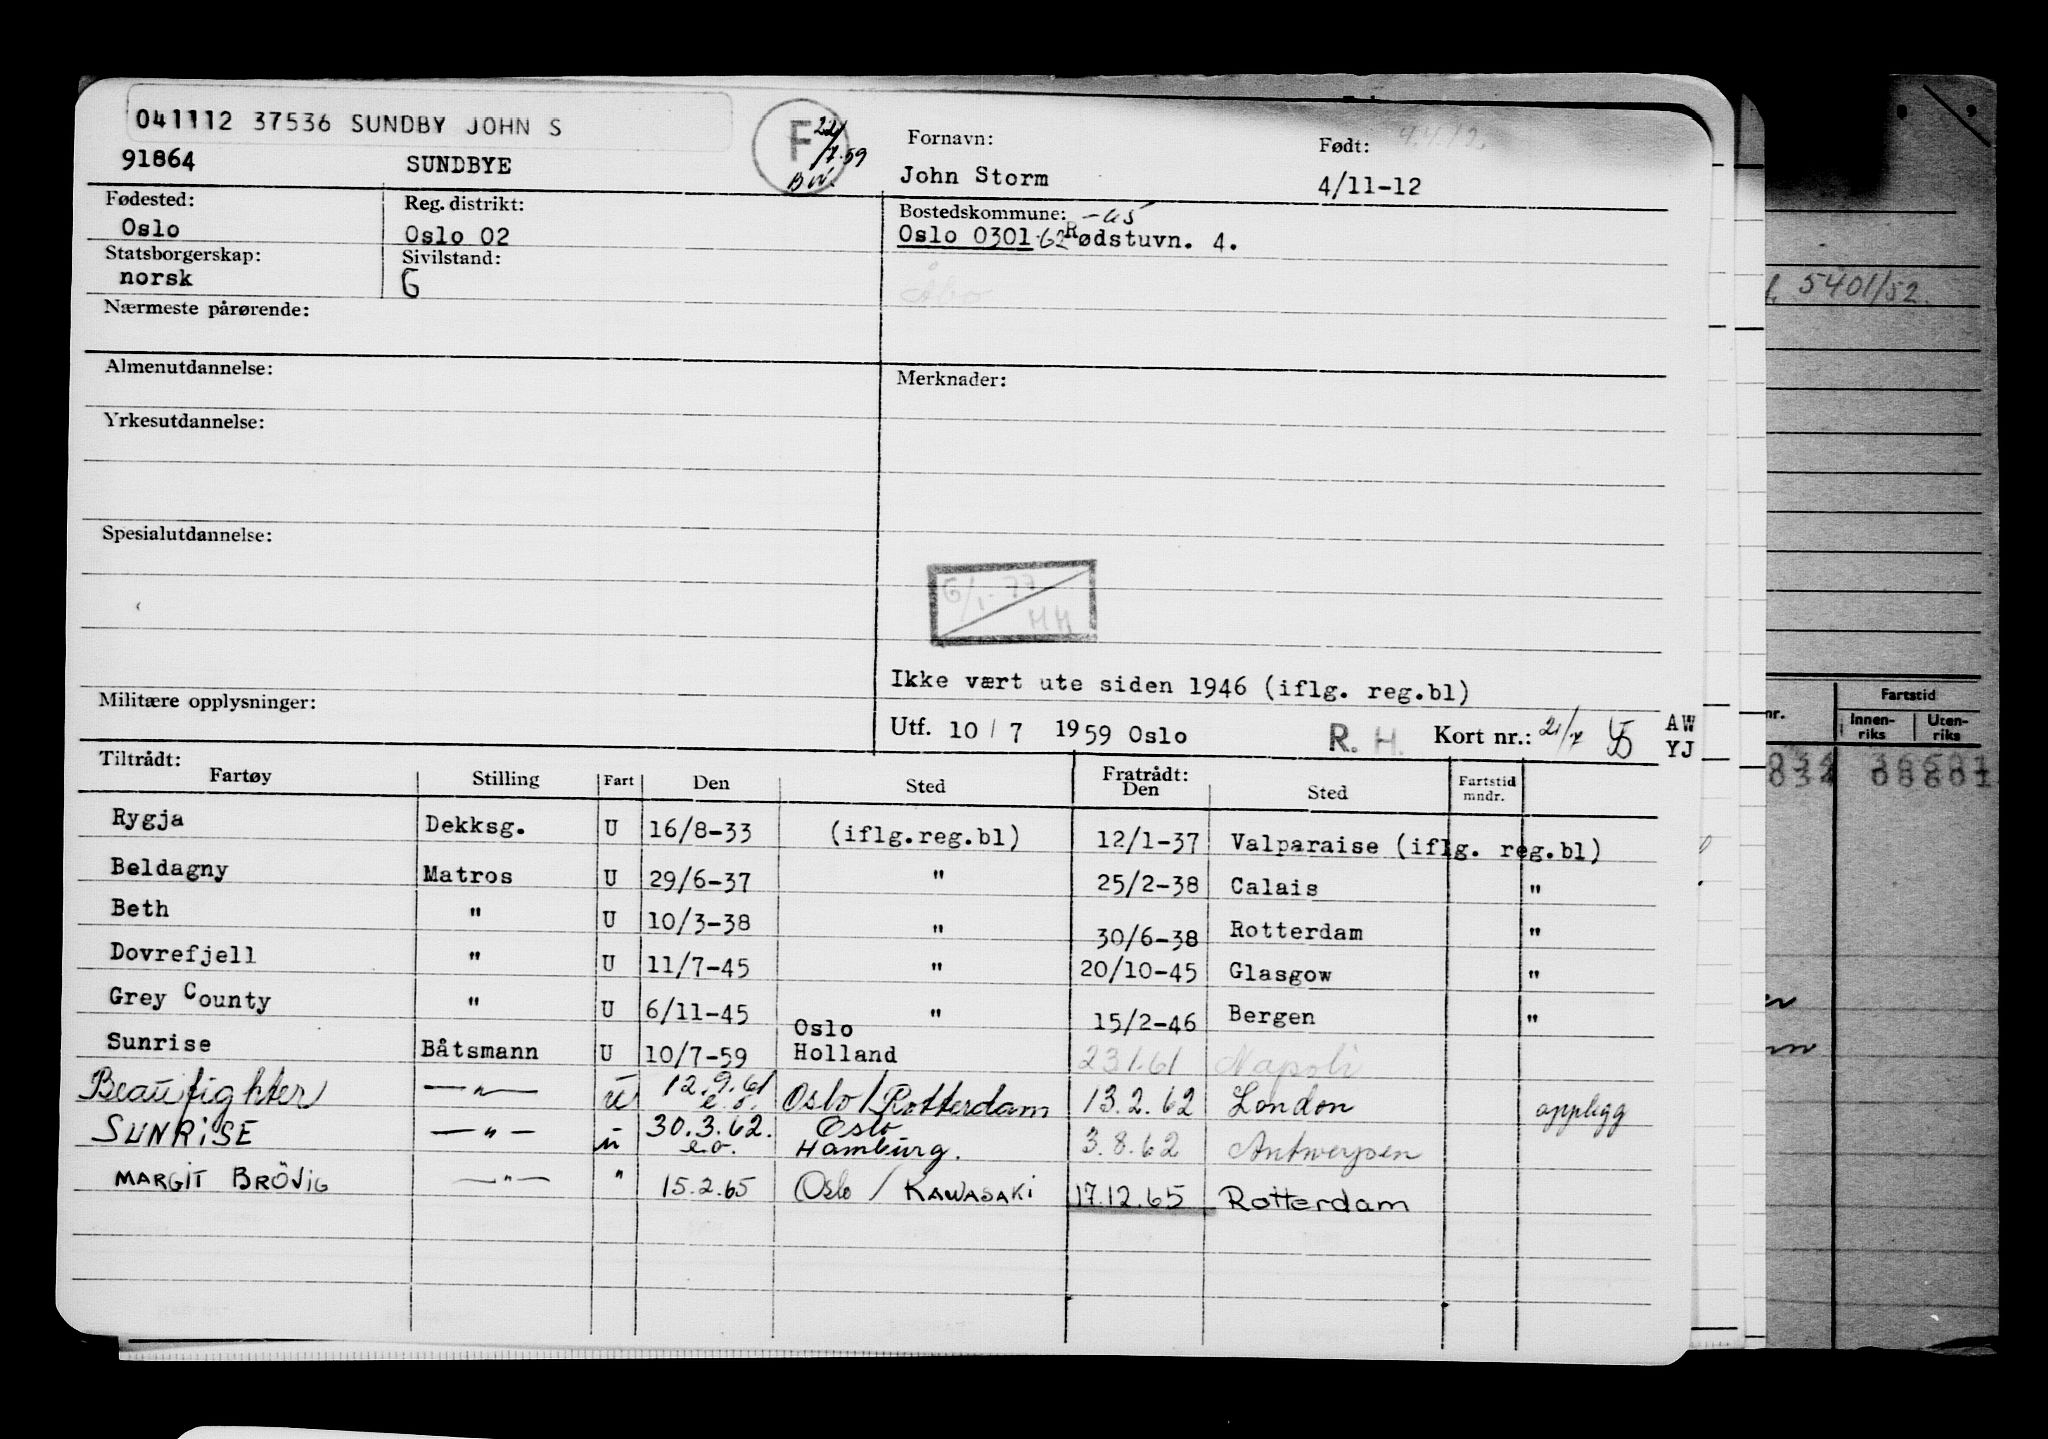 041112 37536 SUNDBY JOHN S
91864 SUNDBYE
F 22/7-59 BW.
Fornavn: John Storm
Født: 4/11-12
4.4.12.
Fødested: Oslo
Reg. distrikt: Oslo 02
Bostedskommune: -65
Oslo 0301-62 Rødstuvn. 4.
Statsborgerskap: norsk
Sivilstand: G
Åbo
Nærmeste pårørende:
Almenutdannelse:
Merknader:
Yrkesutdannelse:
Spesialutdannelse:
6/1-77 HH
Ikke vært ute siden 1946 (iflg. reg.bl)
Militære opplysninger:
Utf. 10/7 1959 Oslo R. H. Kort nr.: 21/7 AW YJ
Tiltrådt: Fratrådt:
Fartøy Stilling Fart Den Sted Den Sted Fartstid mndr.
Rygja Dekksg. U 16/8-33 (iflg.reg.bl) 12/1-37 Valparaise (iflg. reg.bl)
Beldagny Matros U 29/6-37 " 25/2-38 Calais "
Beth " U 10/3-38 " 30/6-38 Rotterdam "
Dovrefjell " U 11/7-45 " 20/10-45 Glasgow "
Grey County " U 6/11-45 " 15/2-46 Bergen "
Sunrise Båtsmann U 10/7-59 Oslo Holland 23.1.61 Napoli
Beaufighter —"— u 12.9.61 e.o. Oslo/Rotterdam 13.2.62 London opplegg
SUNRISE —"— u 30.3.62. e.o. Oslo Hamburg. 3.8.62 Antwerpen
MARGIT BRÖVIG —"— " 15.2.65 Oslo / KAWASAKI 17.12.65 Rotterdam
5401/52.
nr. Fartstid
Innenriks Utenriks